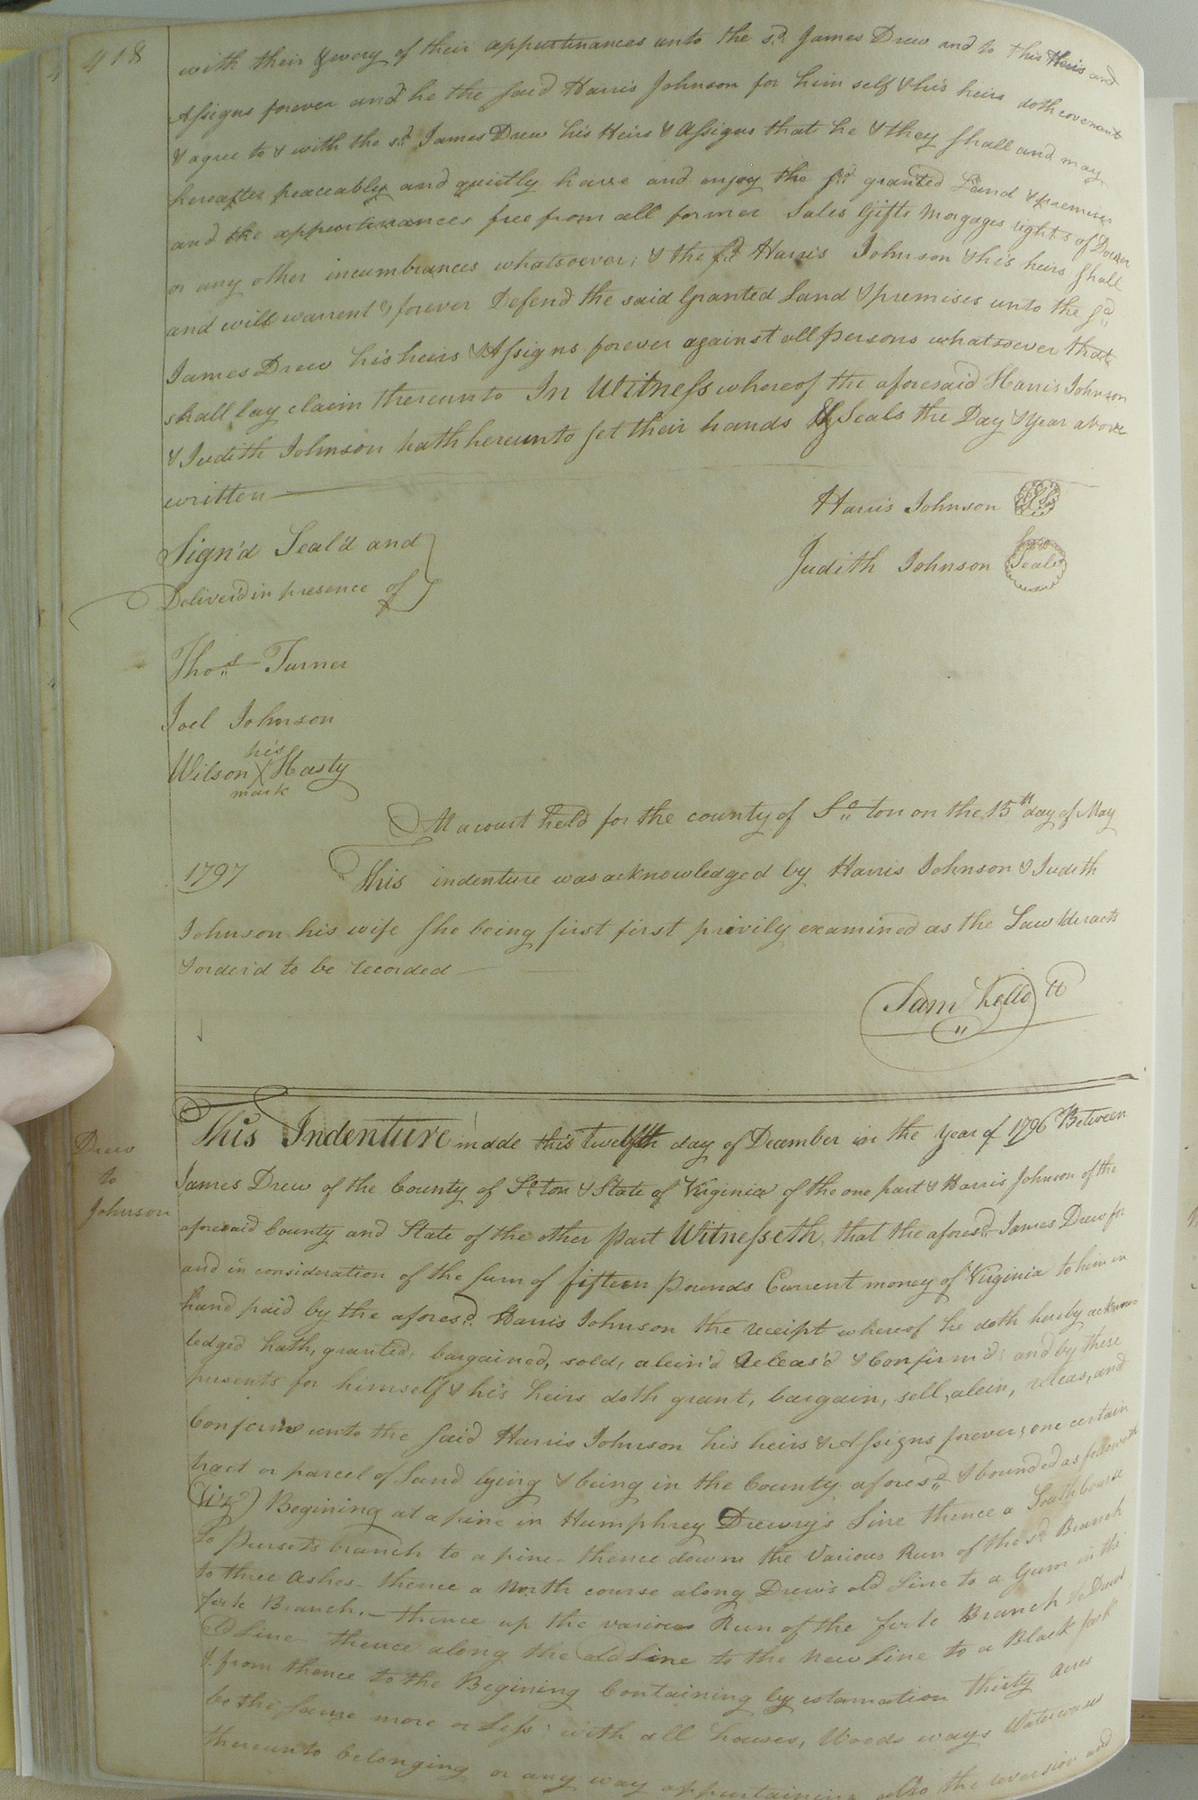 418
with their & every of their appurtenances unto the sd. James Drew and to his Heirs and
Assigns forever and he the said Harris Johnson for him self & his heirs doth covenant
& agree to & with the sd. James Drew his Heirs & Assigns that he & they shall and may
hereafter peaceably and quietly have and enjoy the sd. granted Land & premises
and the appurtenances free from all former Sales Gifts Morgages rights of Dower
or any other incumbrances whatsoever; & the sd. Harris Johnson & his heirs shall
and will warrent & forever Defend the said Granted Land & premises unto the sd.
James Drew his heirs & Assigns forever against all persons whatsoever that
shall lay claim thereunto In Witness whereof the aforesaid Harris Johnson
& Judith Johnson hath hereunto set their hands & Seals the Day & Year above
written
Harris Johnson
Judith Johnson Seal
Sign'd Seal'd and
Deliver'd in presence of
Thos. Turner
Joel Johnson
his
Wilson X Hasty
mark
At a court held for the county of So.ton on the 15th day of May
1797 This indenture was acknowledged by Harris Johnson & Judith
Johnson his wife She being first first privily examined as the Law deracts
& order'd to be recorded
Sam Kello
Drew
to
Johnson
This Indenture made this twelfth day of December in the Year of 1796 Between
James Drew of the County of So.ton & State of Virginia of the one part & Harris Johnson of the
aforesaid County and State of the other part Witnesseth, that the aforesd. James Drew for
and in consideration of the sum of fifteen pounds Current money of Virginia to him in
hand paid by the aforesd. Harris Johnson the receipt whereof he doth hereby acknow
ledged hath, granted, bargained, sold, alein'd Releas'd & Confirm'd; and by these
presents for himself & his heirs doth grant, bargain, sell, alein, releas, and
Conferm unto the said Harris Johnson his heirs & Assigns forever; one certain
tract or parcel of Land lying & being in the County aforesd. & bounded as followeth
(Viz) Begining at a pine in Humphrey Drewry's Line thence a South course
to branch to a pine thence down the Various Run of the sd. Branch
to three Ashes thence a North course along Drew's old Line to a Gum in the
forke Branch thence up the various Run of the forke Branch to Drews
Old Line thence along the old Line to the New Line to a Black Jack
& from thence to the Begining Containing by estamation thirty Acres
be the same more or less with all houses, Woods ways Watercourses
thereunto belonging or any way appurtaining also the reversion and